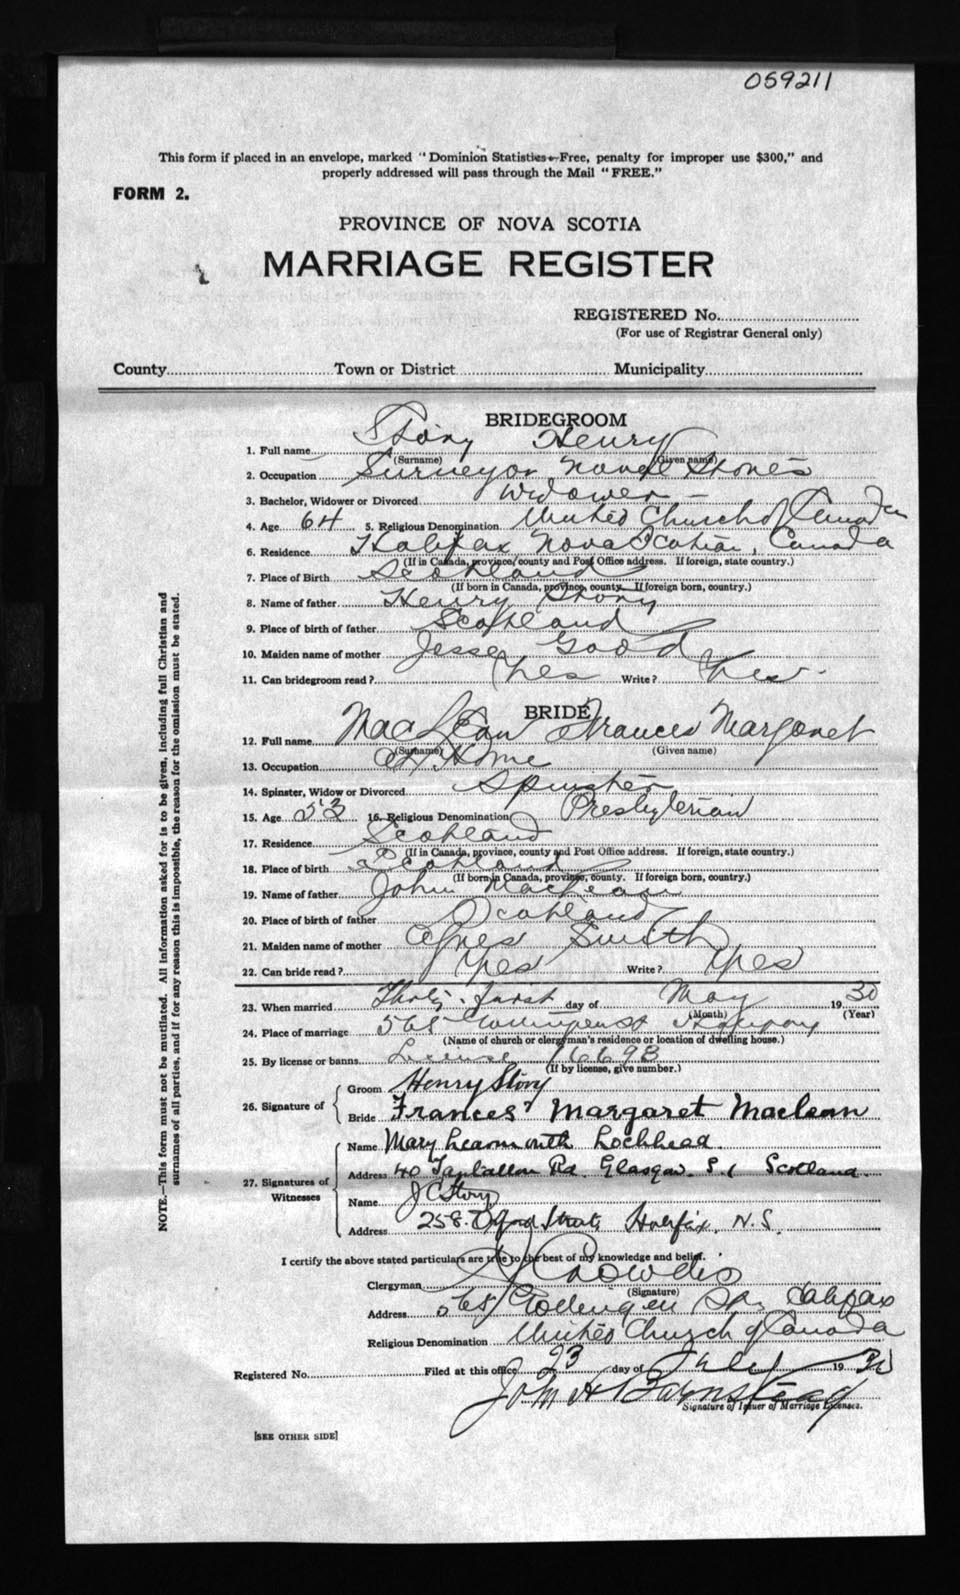 059211
This form if placed in an envelope, marked "Dominion Statistics—Free, penalty for improper use $300," and
properly addressed will pass through the Mail "FREE."
FORM 2.
PROVINCE OF NOVA SCOTIA
MARRIAGE REGISTER
REGISTERED No.
(For use of Registrar General only)
County Town or District Municipality
BRIDEGROOM
1. Full name Story Henry
(Surname) (Given name)
2. Occupation Surveyor Naval Stores
3. Bachelor, Widower or Divorced Widower
4. Age 64 5. Religious Denomination United Church of Canada
6. Residence Halifax Nova Scotia, Canada
(If in Canada, province, county and Post Office address. If foreign, state country.)
7. Place of Birth Scotland
(If born in Canada, province, county. If foreign born, country.)
8. Name of father Henry Story
9. Place of birth of father Scotland
10. Maiden name of mother Jesse Good
11. Can bridegroom read? Yes Write? Yes
BRIDE
12. Full name MacLean Frances Margaret
(Surname) (Given name)
13. Occupation At Home
14. Spinster, Widow or Divorced Spinster
15. Age 53 16. Religious Denomination Presbyterian
17. Residence Scotland
(If in Canada, province, county and Post Office address. If foreign, state country.)
18. Place of birth Scotland
(If born in Canada, province, county. If foreign born, country.)
19. Name of father John MacLean
20. Place of birth of father Scotland
21. Maiden name of mother Agnes Smith
22. Can bride read? Yes Write? Yes
23. When married Thirty-first day of May 1930
(Month) (Year)
24. Place of marriage 568 St
(Name of church or clergyman's residence or location of dwelling house.)
25. By license or banns License 16698
(If by license, give number.)
26. Signature of Groom Henry Story
Bride Frances Margaret Maclean
27. Signatures of Witnesses Name Mary Learmonth Lochhead
Address 40 Tantallon Rd. Glasgow. S.1 Scotland
Name J C Story
Address 258 Oxford Street Halifax, N.S.
I certify the above stated particulars are true to the best of my knowledge and belief.
Clergyman
(Signature)
Address 568 St. Halifax
Religious Denomination United Church of Canada
Registered No. Filed at this office 23 day of July 1930
John H Barnstead
Signature of Issuer of Marriage Licenses.
[SEE OTHER SIDE]
NOTE.—This form must not be mutilated. All information asked for is to be given, including full Christian and
surnames of all parties, and if for any reason this is impossible, the reason for the omission must be stated.